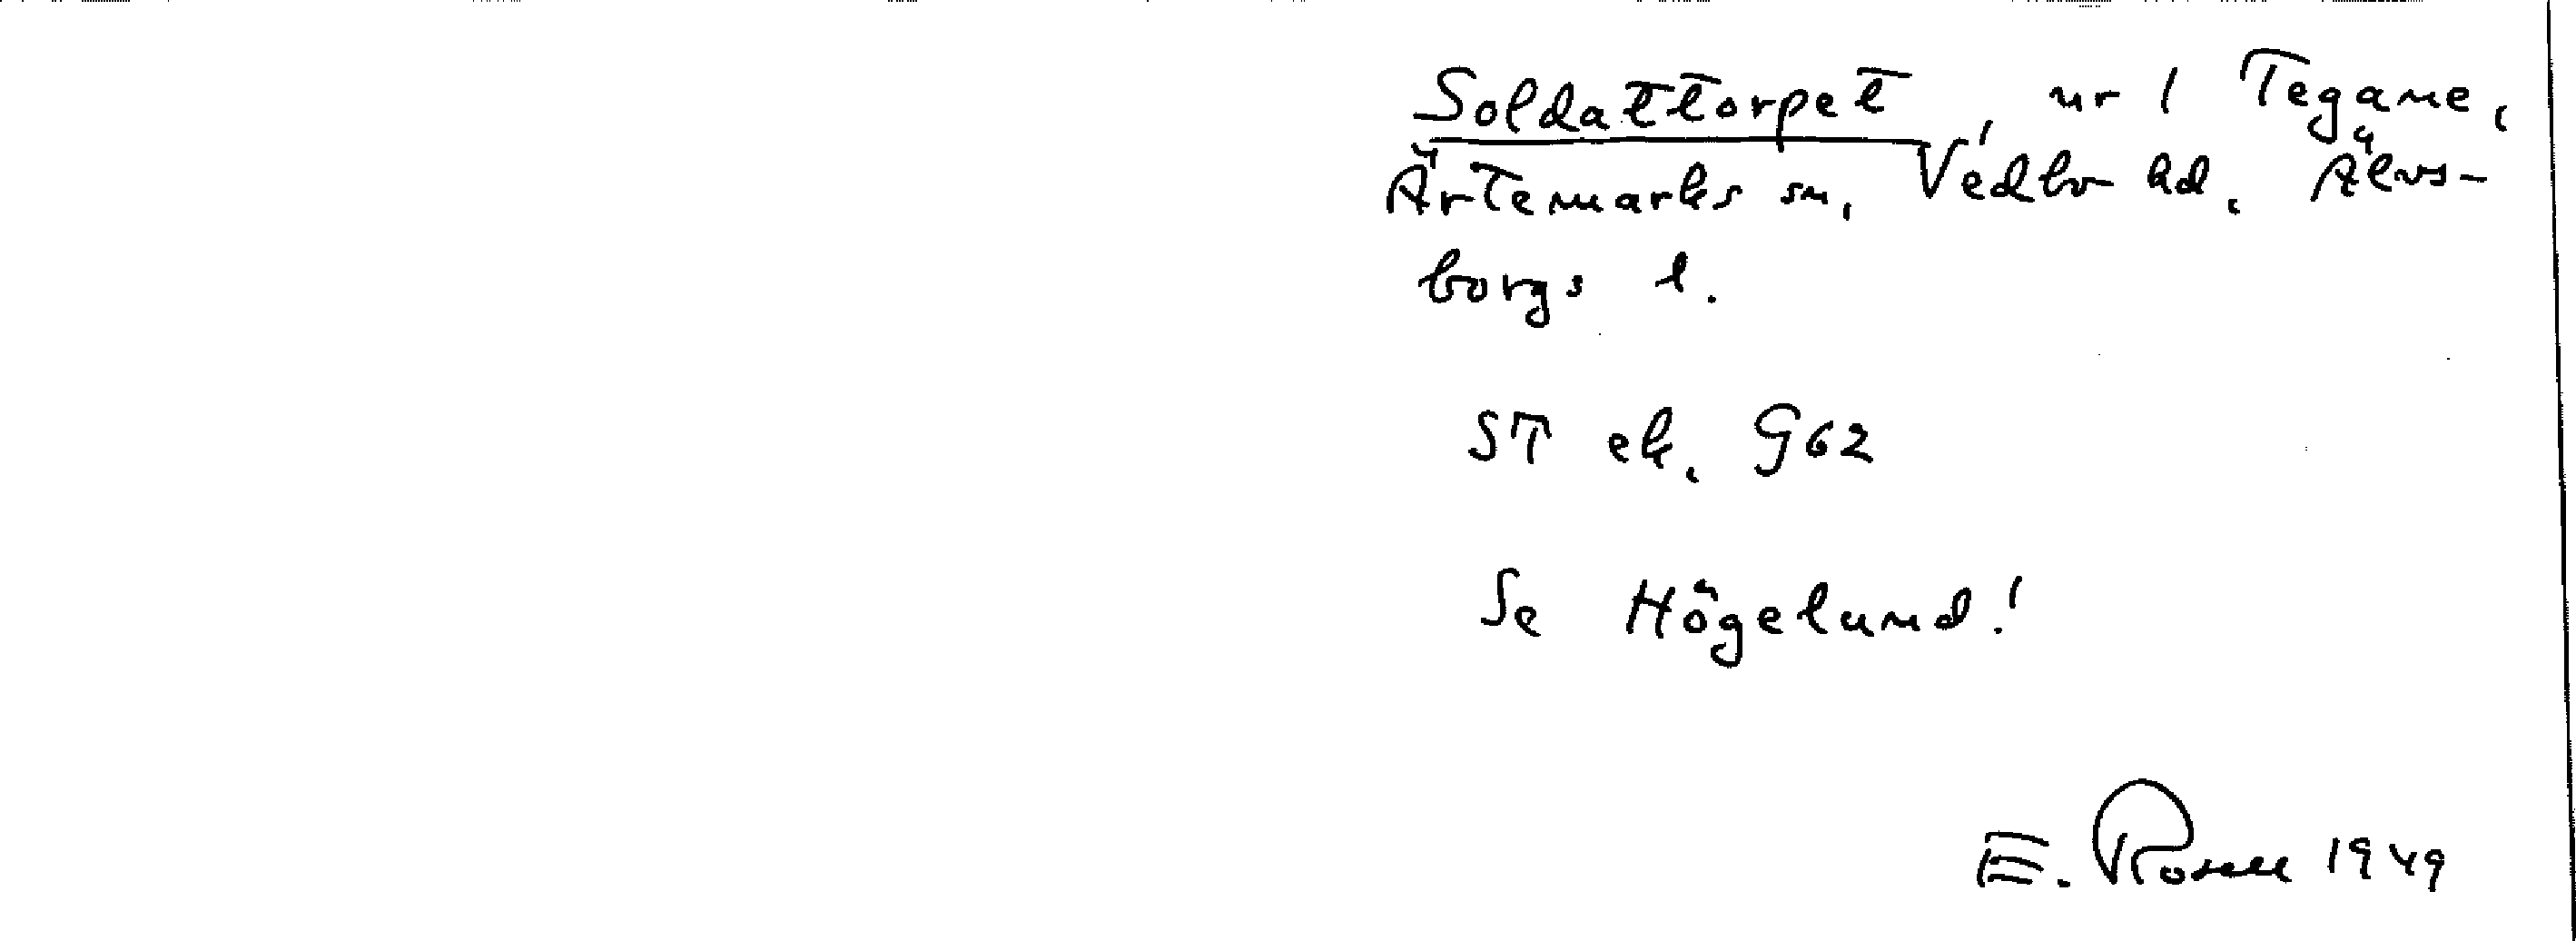 Soldattorpet, nr 1 Tegane,
Ärtemarks sn, Vedbo hd. Älvs-
borgs l.
ST ek. G62
Se Högelund!
E. Rosell 1949